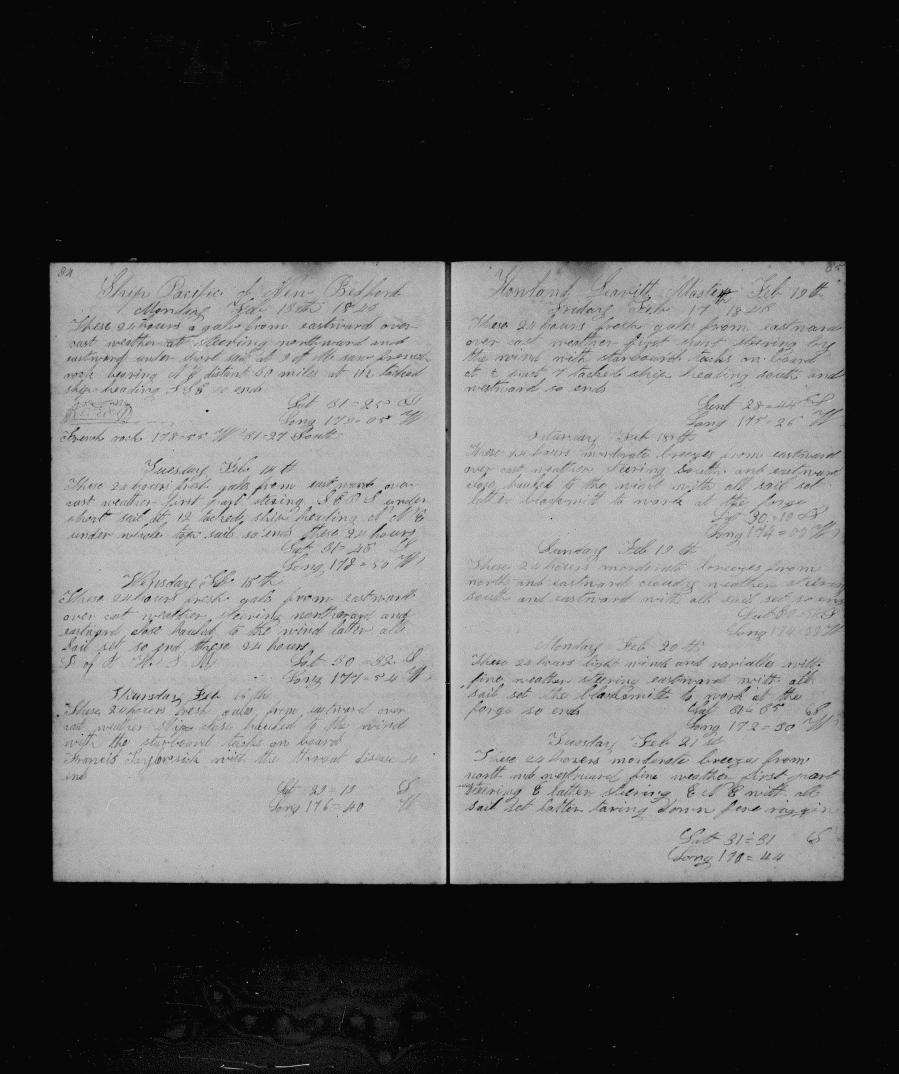 84
Ship Pacific of New Bedford
Monday Feb 13th 1845
These 24 hours a gale from eastward over
cast weather at steering northward and
eastward under short sail at 9 of the saw french
rock bearing distant 30 miles at 11½ tacked
ship heading so ends
Lat 31=25 S
Long 179=05 W
French rock 178=55 W 31-27 South
Tuesday Feb 14th
These 24 hours fresh gale from eastward over
cast weather first part stering under
short sail at 12 tacked ship heading N N E
under whole top sails so ends these 24 hours
Lat 31=45 S
Long 178=50 W
Wensday Feb 15th
These 24 hours fresh gale from eastward
over cat weather sterring northward and
eastward close hauled to the wind latter all
sail set so end these 24 hours
Lat 30=32 S
Long 177=54 W
Thursday Feb 16th
These 24 hours fresh gales from eastward over
cast weather ship close hauled to the wind
with the starboard tacks on board
Francis sick with the throat disease so
end
Lat 29=19 S
Long 176=40 W
85
Howland Leavitt Master Feb 19th
Friday Feb 17th 1845
These 24 hours fresh gales from eastward
over cast weather first part steering by
the wind with starboard tacks on board
at part tacked ship heading south and
westward so ends
Lent 28=44 S
Long 175=26 W
Saturday Feb 18th
These 24 hours moderate breezes from eastward
over cast weather steering South and eastward
close hauled to the wind with all sail set
latter blacksmith to work at the forge
Lat 30=10 S
Long 174=09 W
Sunday Feb 19th
These 24 hours morderate breezes from
north and eastward cloudy weather steering
south and eastward with all sail set so end
Lat S
Long 174 W
Monday Feb 20th
These 24 hours light winds and variables with
fine weather steering eastward with all
sail set the blacksmith to work at the
forge so ends Lat 31=35 S
Long 172=50 W
Tuesday Feb 21st
These 24 hours morderate breezes from
north and westward fine weather first part
steering E latter steering E N E with all
sail set latter taring down fore riggin
Lat 31=31 S
Long 170=44